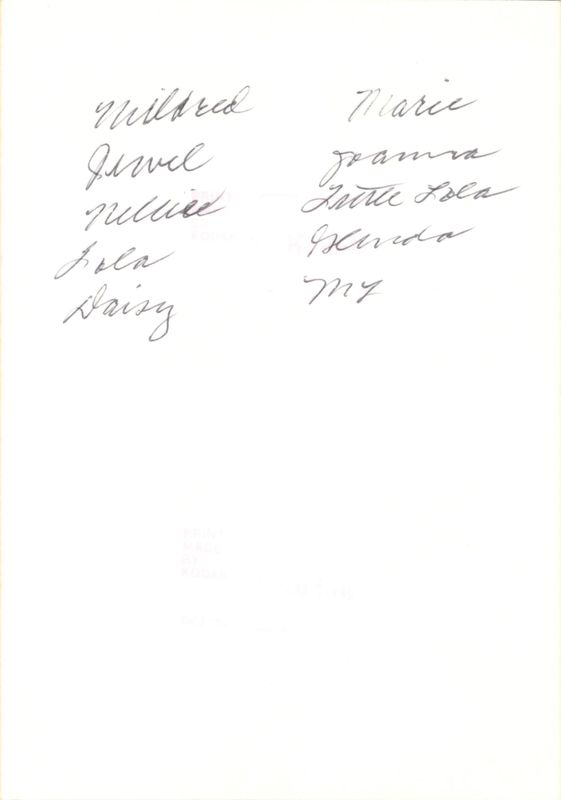 Mildred Marie
Jewel Joanna
Nellie Little Lola
Lola Glenda
Daisy My
PRINT
MADE
BY
KODAK